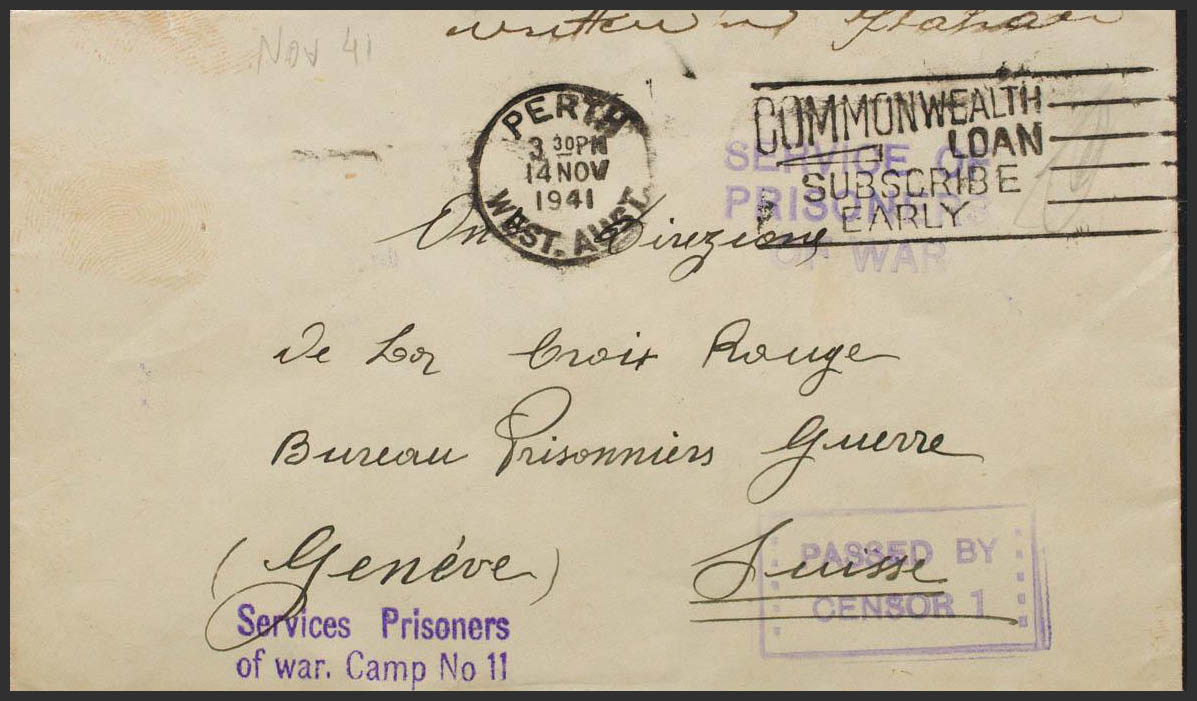 written in Italian
Nov 41
PERTH
3 30PM
14 NOV
1941
WEST. AUST.
COMMONWEALTH
LOAN
SUBSCRIBE
EARLY
SERVICE OF
PRISONERS
OF WAR
Direzione
de La Croix Rouge
Bureau Prisonniers Guerre
(Genève) Suisse
PASSED BY
CENSOR 1
Services Prisoners
of war. Camp No 11